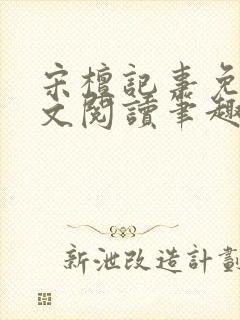 宋檀記事免
文閱讀筆趣
新泄改造計劃